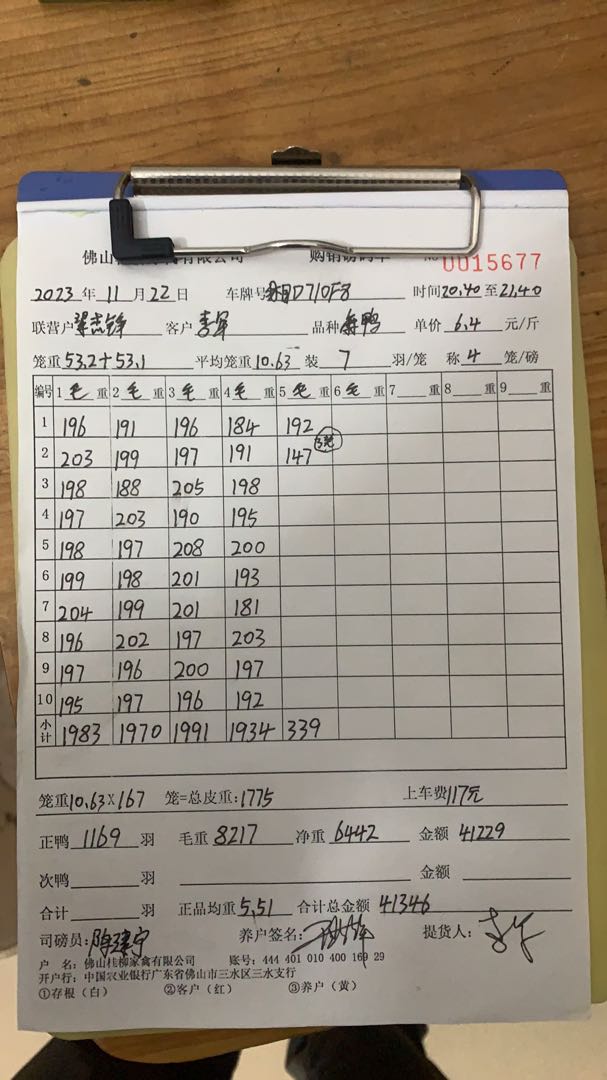 佛山 有限公司 购销磅码单 No 0015677
2023 年 11 月 22 日 车牌号 D710F8 时间 20:40 至 21:40
联营户 客户 李军 品种 鸭 单价 6.4 元/斤
笼重 53.2+53.1 平均笼重 10.63 装 7 羽/笼 称 4 笼/磅
编号 1 毛 重 2 毛 重 3 毛 重 4 毛 重 5 毛 重 6 毛 重 7 重 8 重 9 重
1 196 191 196 184 192
2 203 199 197 191 147 3笼
3 198 188 205 198
4 197 203 190 195
5 198 197 208 200
6 199 198 201 193
7 204 199 201 181
8 196 202 197 203
9 197 196 200 197
10 195 197 196 192
小计 1983 1970 1991 1934 339
笼重 10.63×167 笼=总皮重: 1775 上车费 117元
正鸭 1169 羽 毛重 8217 净重 6442 金额 41229
次鸭 羽 金额
合计 羽 正品均重 5.51 合计总金额 41346
司磅员: 养户签名: 提货人:
户 名: 佛山桂柳家禽有限公司 账号: 444 401 010 400 169 29
开户行: 中国农业银行广东省佛山市三水区三水支行
①存根(白) ②客户(红) ③养户(黄)